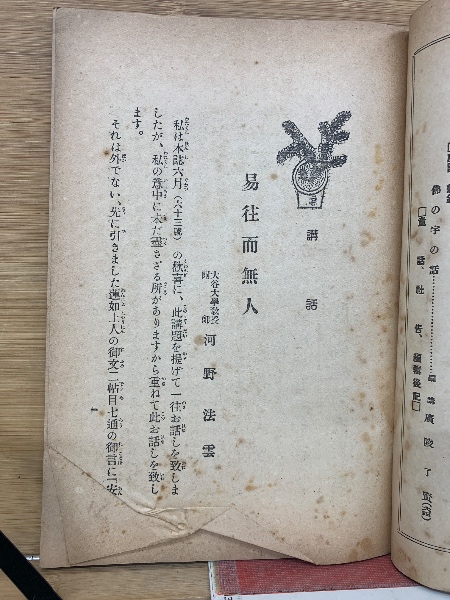 佛の字の話………………編譯 廣陵了賢
講話
易往而無人
大谷大學敎授
河野法雲
私は本誌六月(六十三號)の歡喜に、此講題を提げて一往お話しを致しま
したが、私の意中に未だ盡さざる所がありますから重ねて此お話しを致し
ます。
それは外でない、先に引きました蓮如上人の御文二帖目七通の御言に「安